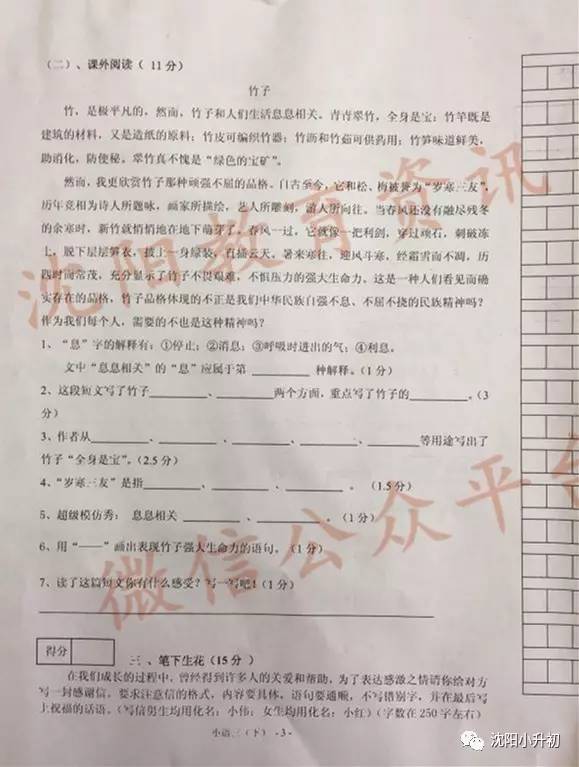 （二）、课外阅读（ 11 分）
竹子
竹，是极平凡的，然而，竹子和人们生活息息相关。青青翠竹，全身是宝：竹竿既是
建筑的材料，又是造纸的原料；竹皮可编织竹器；竹沥和竹茹可供药用；竹笋味道鲜美，
助消化，防便秘。翠竹真不愧是“绿色的宝矿”。
然而，我更欣赏竹子那种顽强不屈的品格。自古至今，它和松、梅被誉为“岁寒三友”，
历年竞相为诗人所题咏，画家所描绘，艺人所雕刻，游人所向往。当春风还没有融尽残冬
的余寒时，新竹就悄悄地在地下萌芽了。春风一过，它就像一把利剑，穿过顽石，刺破冻
土，脱下层层笋衣，披上一身绿装，直插云天。暑来寒往，迎风斗寒，经霜雪而不凋，历
四时而常茂，充分显示了竹子不畏艰难，不惧压力的强大生命力。这是一种人们看见而确
实存在的品格，竹子品格体现的不正是我们中华民族自强不息、不屈不挠的民族精神吗？
作为我们每个人，需要的不也是这种精神吗？
1、“息”字的解释有：①停止；②消息；③呼吸时进出的气；④利息。
文中“息息相关”的“息”应属于第 ________ 种解释。（1 分）
2、这段短文写了竹子________、________两个方面，重点写了竹子的________。（3
分）
3、作者从________、________、________、________、________等用途写出了
竹子“全身是宝”。（2.5 分）
4、“岁寒三友”是指________、________、________。（1.5 分）
5、超级模仿秀： 息息相关 ________、________。（1 分）
6、用“——”画出表现竹子强大生命力的语句。（1 分）
7、读了这篇短文你有什么感受？写一写吧！（1 分）
得分
三 、笔下生花（15 分 ）
在我们成长的过程中，曾经得到许多人的关爱和帮助，为了表达感激之情请你给对方
写一封感谢信。要求注意信的格式，内容要具体，语句要通顺，不写错别字，并在最后写
上祝福的话语。（写信男生均用化名：小伟；女生均用化名：小红）（字数在 250 字左右）
小语三（下） - 3 -
沈阳教育资讯
微信公众平台
沈阳小升初